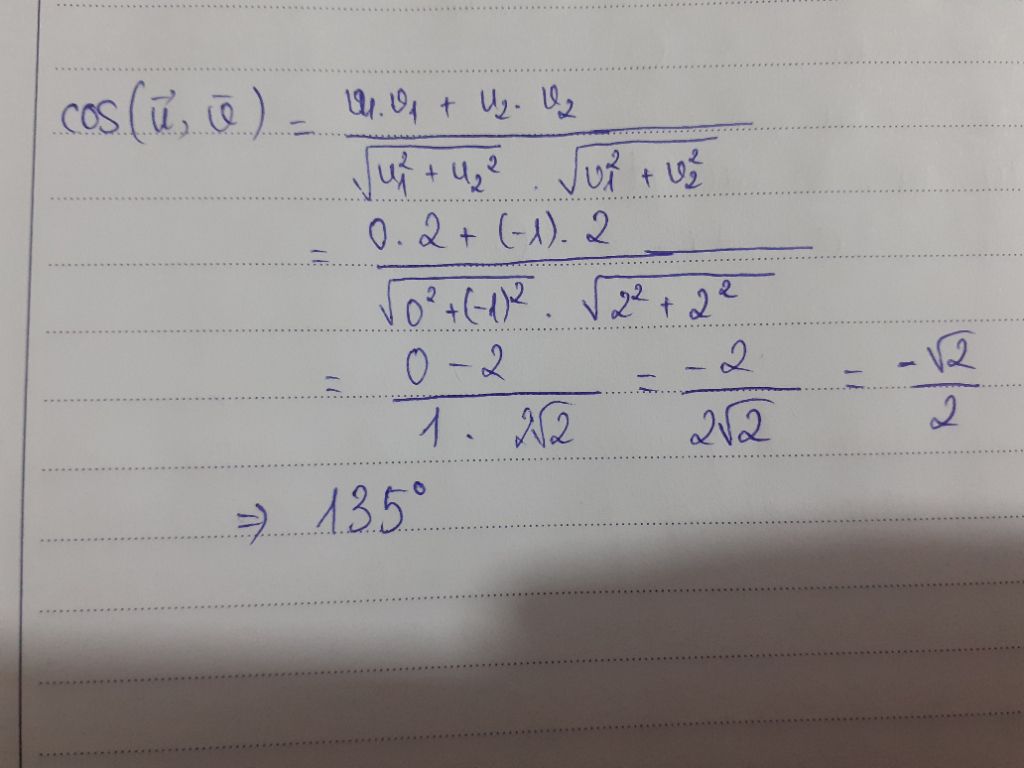 cos(u⃗, v⃗) = (u₁.v₁ + u₂.v₂) / (√(u₁² + u₂²) . √(v₁² + v₂²))
= (0.2 + (-1).2) / (√(0² + (-1)²) . √(2² + 2²))
= (0 - 2) / (1 . 2√2) = -2 / (2√2) = -√2 / 2
⇒ 135°